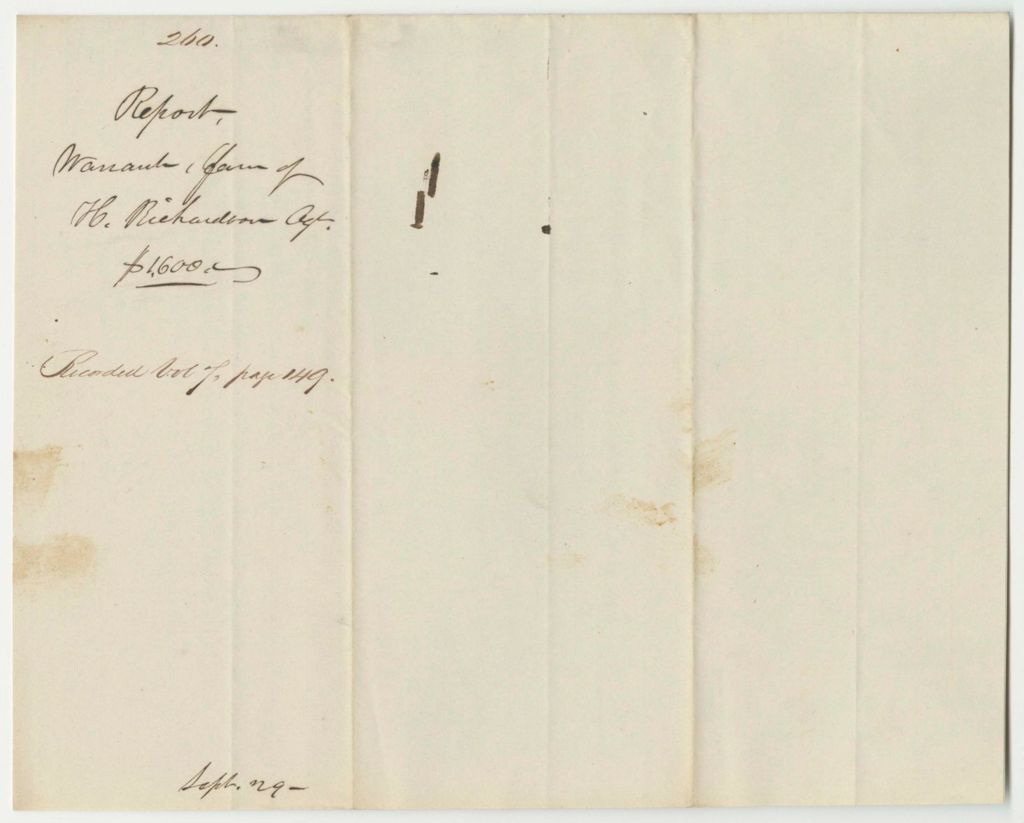 260.
Report,
Warrant, favr of
H. Richardson Agt.
$1,600.
Recorded Vol 7, page 149.
Sept. 29